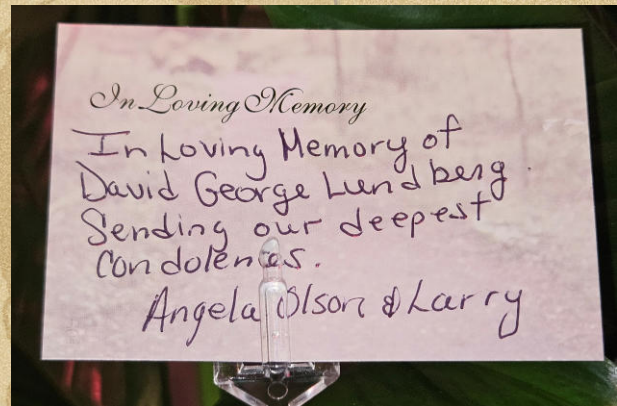 In Loving Memory
In Loving Memory of
David George Lundberg.
Sending our deepest
Condolences.
Angela Olson & Larry